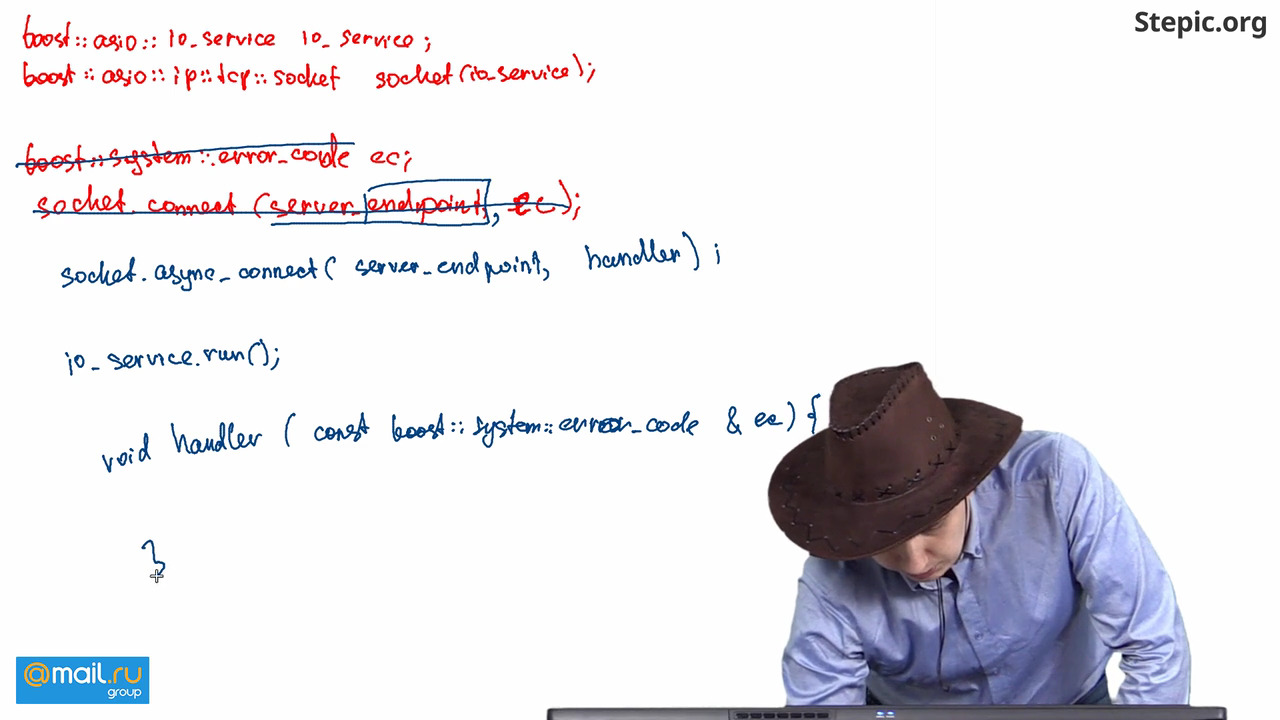 Stepic.org
boost::asio::io_service io_service;
boost::asio::ip::tcp::socket socket(io_service);
boost::system::error_code ec;
socket.connect (server_endpoint, ec);
socket.async_connect( server_endpoint, handler) ;
io_service.run();
void handler ( const boost::system::error_code & ec) {
}
@mail.ru
group